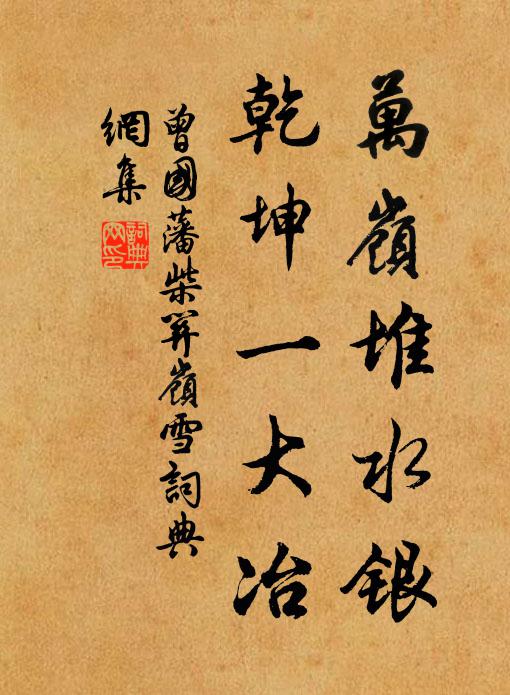 萬嶺堆水銀
乾坤一大冶
曾國藩柴關嶺雪詞典
網集
詞典
網印